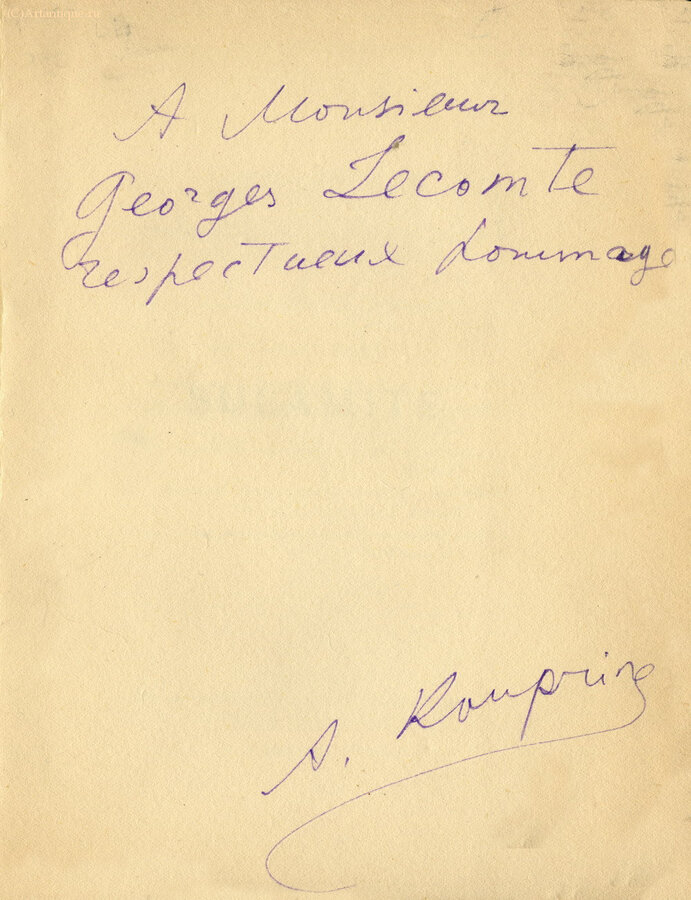 (C)Artantique.ru
A Monsieur
Georges Lecomte
respectueux hommage
A. Kouprine